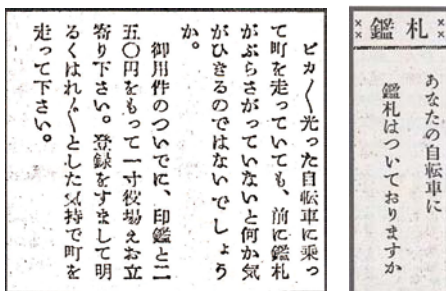 鑑札
あなたの自転車に
鑑札はついておりますか
ピカ〳〵光った自転車に乗っ
て町を走っていても、前に鑑札
がぶらさがっていないと何か気
がひきるのではないでしょう
か。
御用件のついでに、印鑑と二
五〇円をもって一寸役場えお立
寄り下さい。登録をすまして明
るくはれ〲〳〵とした気持で町を
走って下さい。